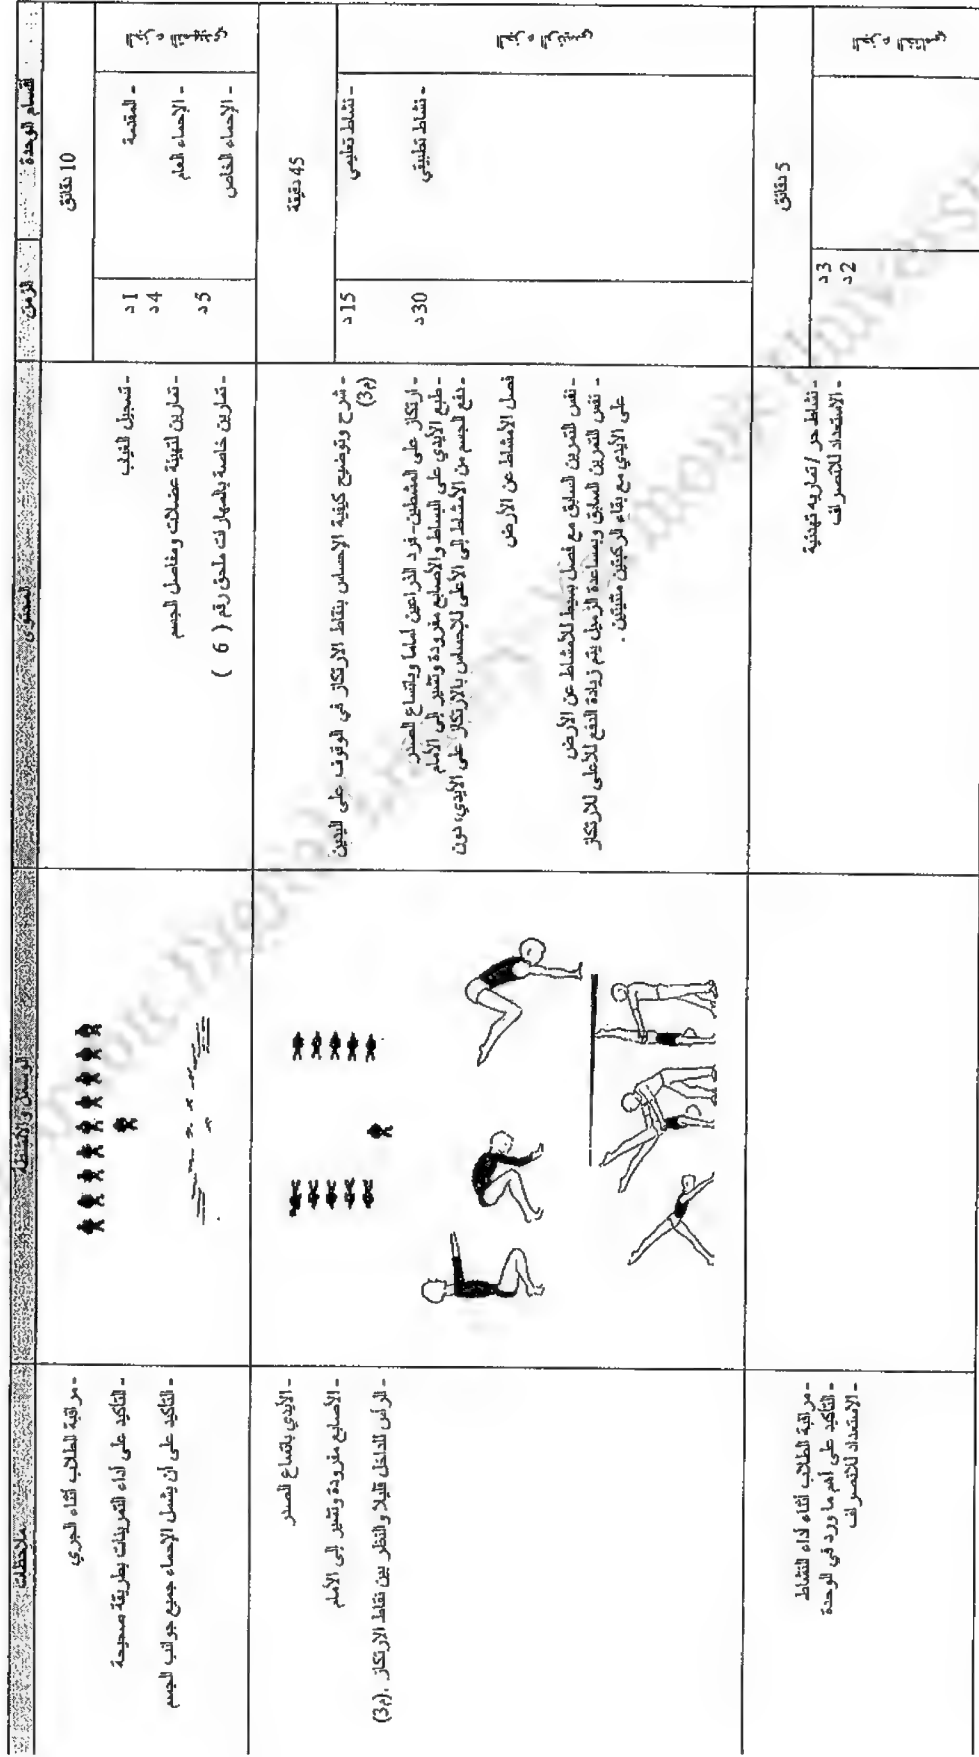 أقسام الوحدة الزمن المحتوى الوسائل والأنشطة ملاحظات
10 دقائق
- المقدمة
- الإحماء العام
- الإحماء الخاص
1 د
4 د
5 د
- تسجيل الغياب
- تمارين لتهيئة عضلات ومفاصل الجسم
- تمارين خاصة بالمهارات ملحق رقم ( 6 )
- مراقبة الطلاب أثناء الجري
- التأكيد على أداء التمرينات بطريقة صحيحة
- التأكيد على أن يشمل الإحماء جميع جوانب الجسم
45 دقيقة
- نشاط تعليمي
- نشاط تطبيقي
15 د
30 د
- شرح وتوضيح كيفية الإحساس بنقاط الارتكاز في الوقوف على اليدين
(م3)
- ارتكاز على المشطين - فرد الذراعين أماما وباتساع الصدر
- طبع الأيدي على البساط والأصابع مفرودة وتشير إلى الأمام
- دفع الجسم من الأمشاط إلى الأعلى للإحساس بالارتكاز على الأيدي، دون
فصل الأمشاط عن الأرض
- نفس التمرين السابق مع فصل بسيط للأمشاط عن الأرض
- نفس التمرين السابق وبمساعدة الزميل يتم زيادة الدفع للأعلى للارتكاز
على الأيدي مع بقاء الركبتين مثنيتين .
- الأيدي باتساع الصدر
- الأصابع مفرودة وتشير إلى الأمام
- الرأس للداخل قليلا والنظر بين نقاط الارتكاز .(م3)
5 دقائق
3 د
2 د
- نشاط حر / تمارين تهدئة
- الاستعداد للانصراف
- مراقبة الطلاب أثناء أداء النشاط
- التأكيد على أهم ما ورد في الوحدة
- الاستعداد للانصراف